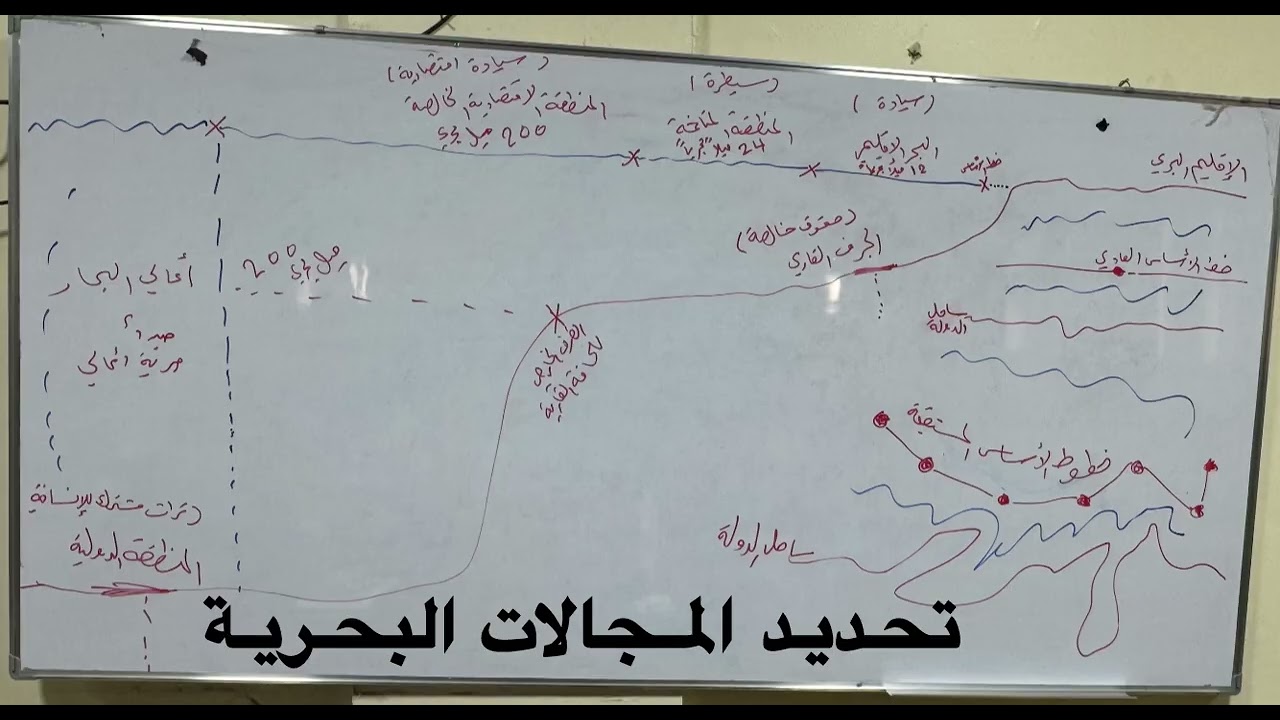 (سيادة)
البحر الإقليمي
12 ميلاً بحرياً
(سيطرة)
المنطقة المتاخمة
24 ميلاً بحرياً
(سيادة اقتصادية)
المنطقة الاقتصادية الخالصة
200 ميل بحري
خط الأساس
الإقليم البري
(حقوق خالصة)
الجرف القاري
خط الأساس العادي
ساحل
الدولة
خطوط الأساس المستقيمة
ساحل الدولة
200 ميل بحري
الطرف الخارجي
للحافة القارية
أعالي البحار
مبدأ
حرية أعالي
(تراث مشترك للإنسانية
المنطقة الدولية
تحديد المجالات البحرية